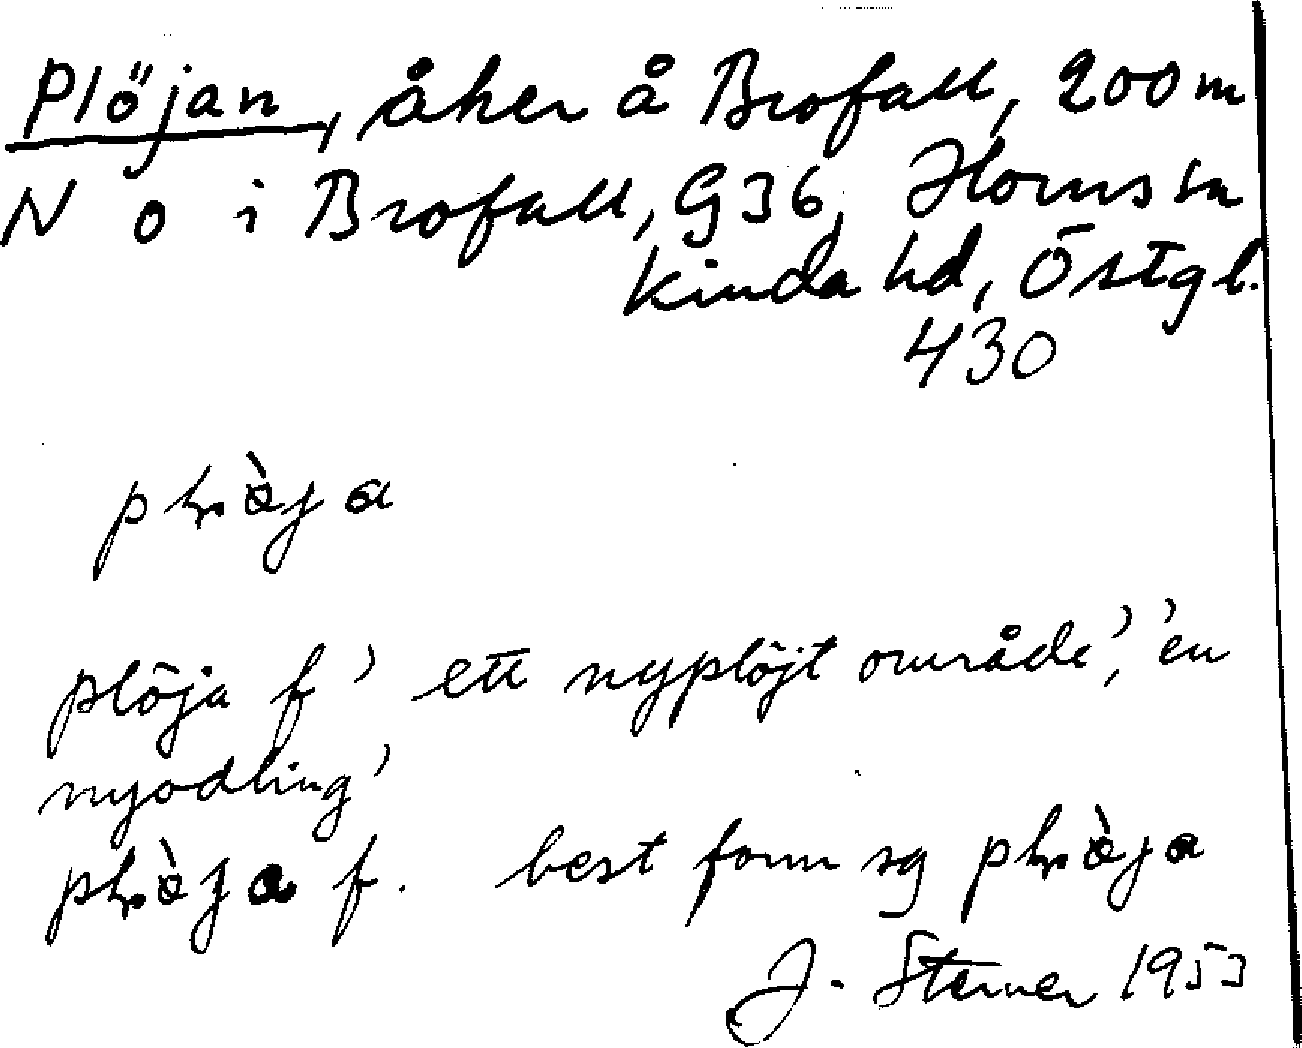 Plöjan, åker å Brofall, 200 m
N o i Brofall, G36, Horns sn
Kinda hd, Östgl.
430
plöja f ' ett nyplöjt område', 'en
nyodling'
f. best form sg
J. Sterner 1953